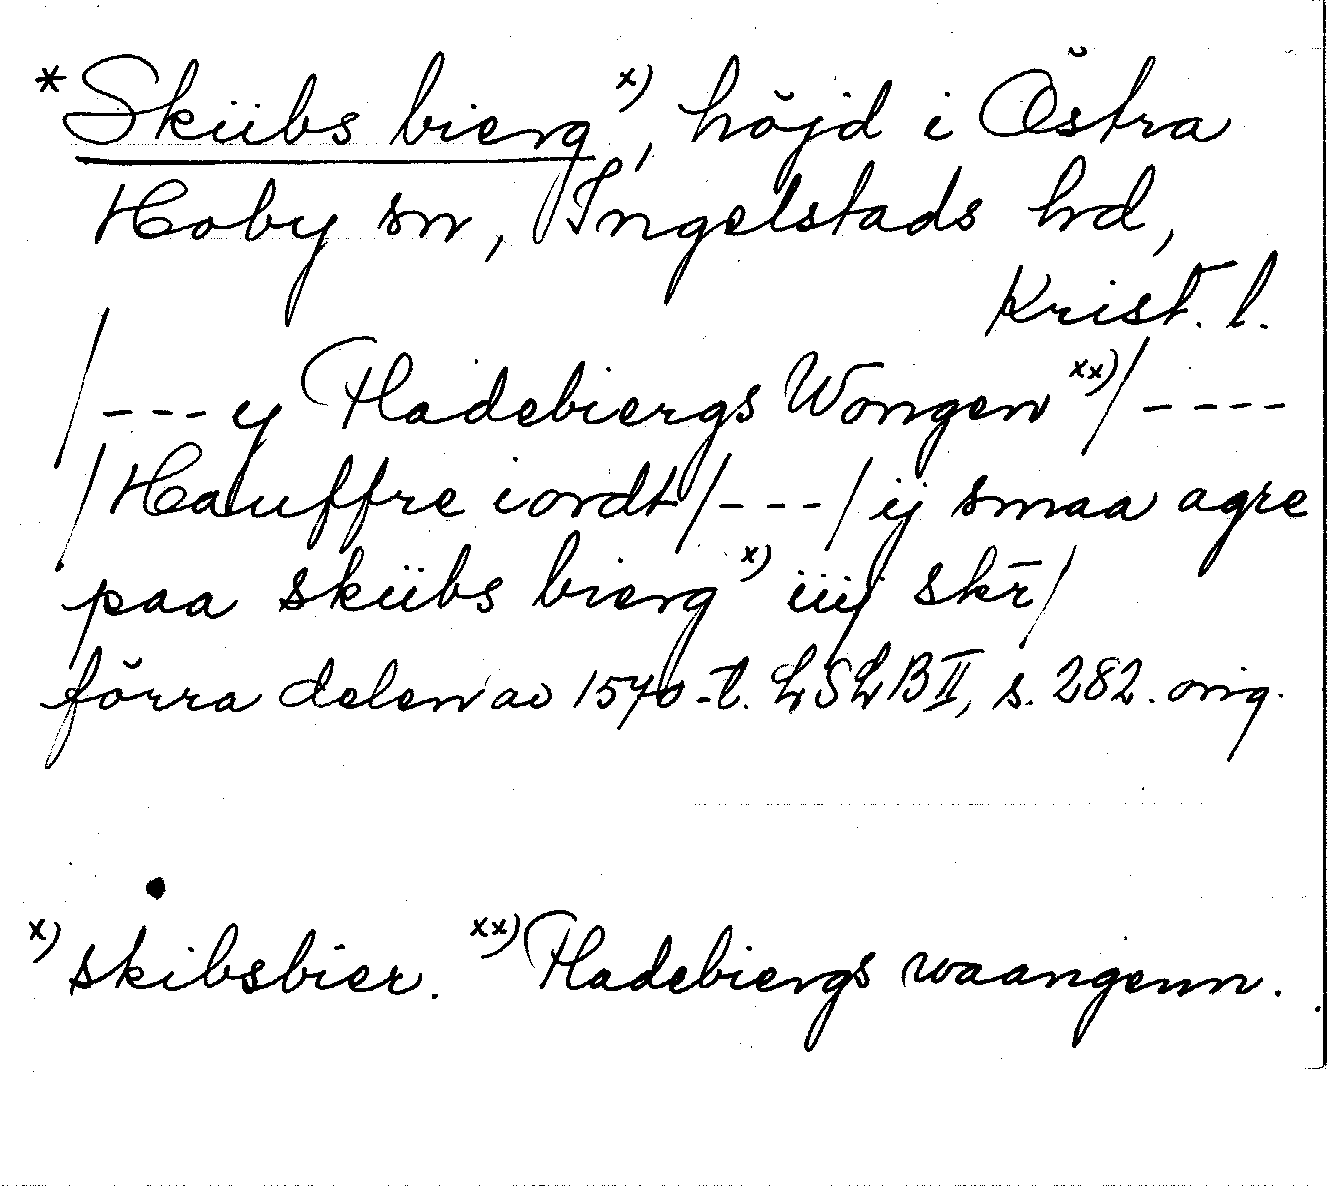 *Skiibs bierg x), höjd i Östra
Hoby sn, Ingelstads hd,
Krist. l.
/---y Fladebiergs Wongen xx)/----
/Hauffre iordt/---/ij smaa agre
paa skiibs bierg x) iiij skr̄/
förra delen av 1570-t. LSLB II, s. 282. orig.
x) skibsbier. xx) Fladebiergs waangenn.